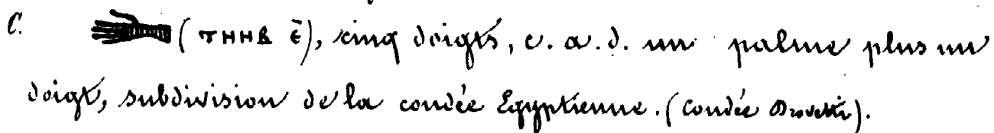 C. (ⲧⲏⲏⲃ ⲉ̄), cinq doigts, c. a. d. un palme plus un
doigt, subdivision de la condée Egyptienne. (Condée Drovetti).